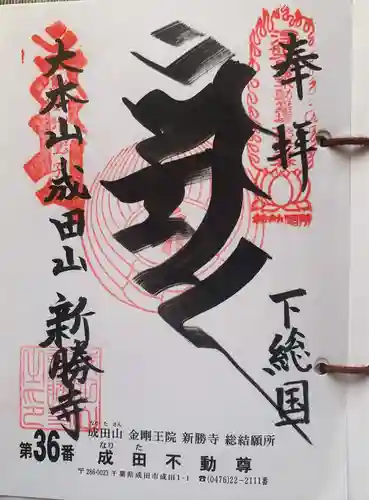 奉拝
下総国
大本山成田山 新勝寺
なり た さん
成田山 金剛王院 新勝寺 総結願所
なり た
第36番 成田不動尊
〒286-0023 千葉県成田市成田1-1 ☎(0476)22-2111番